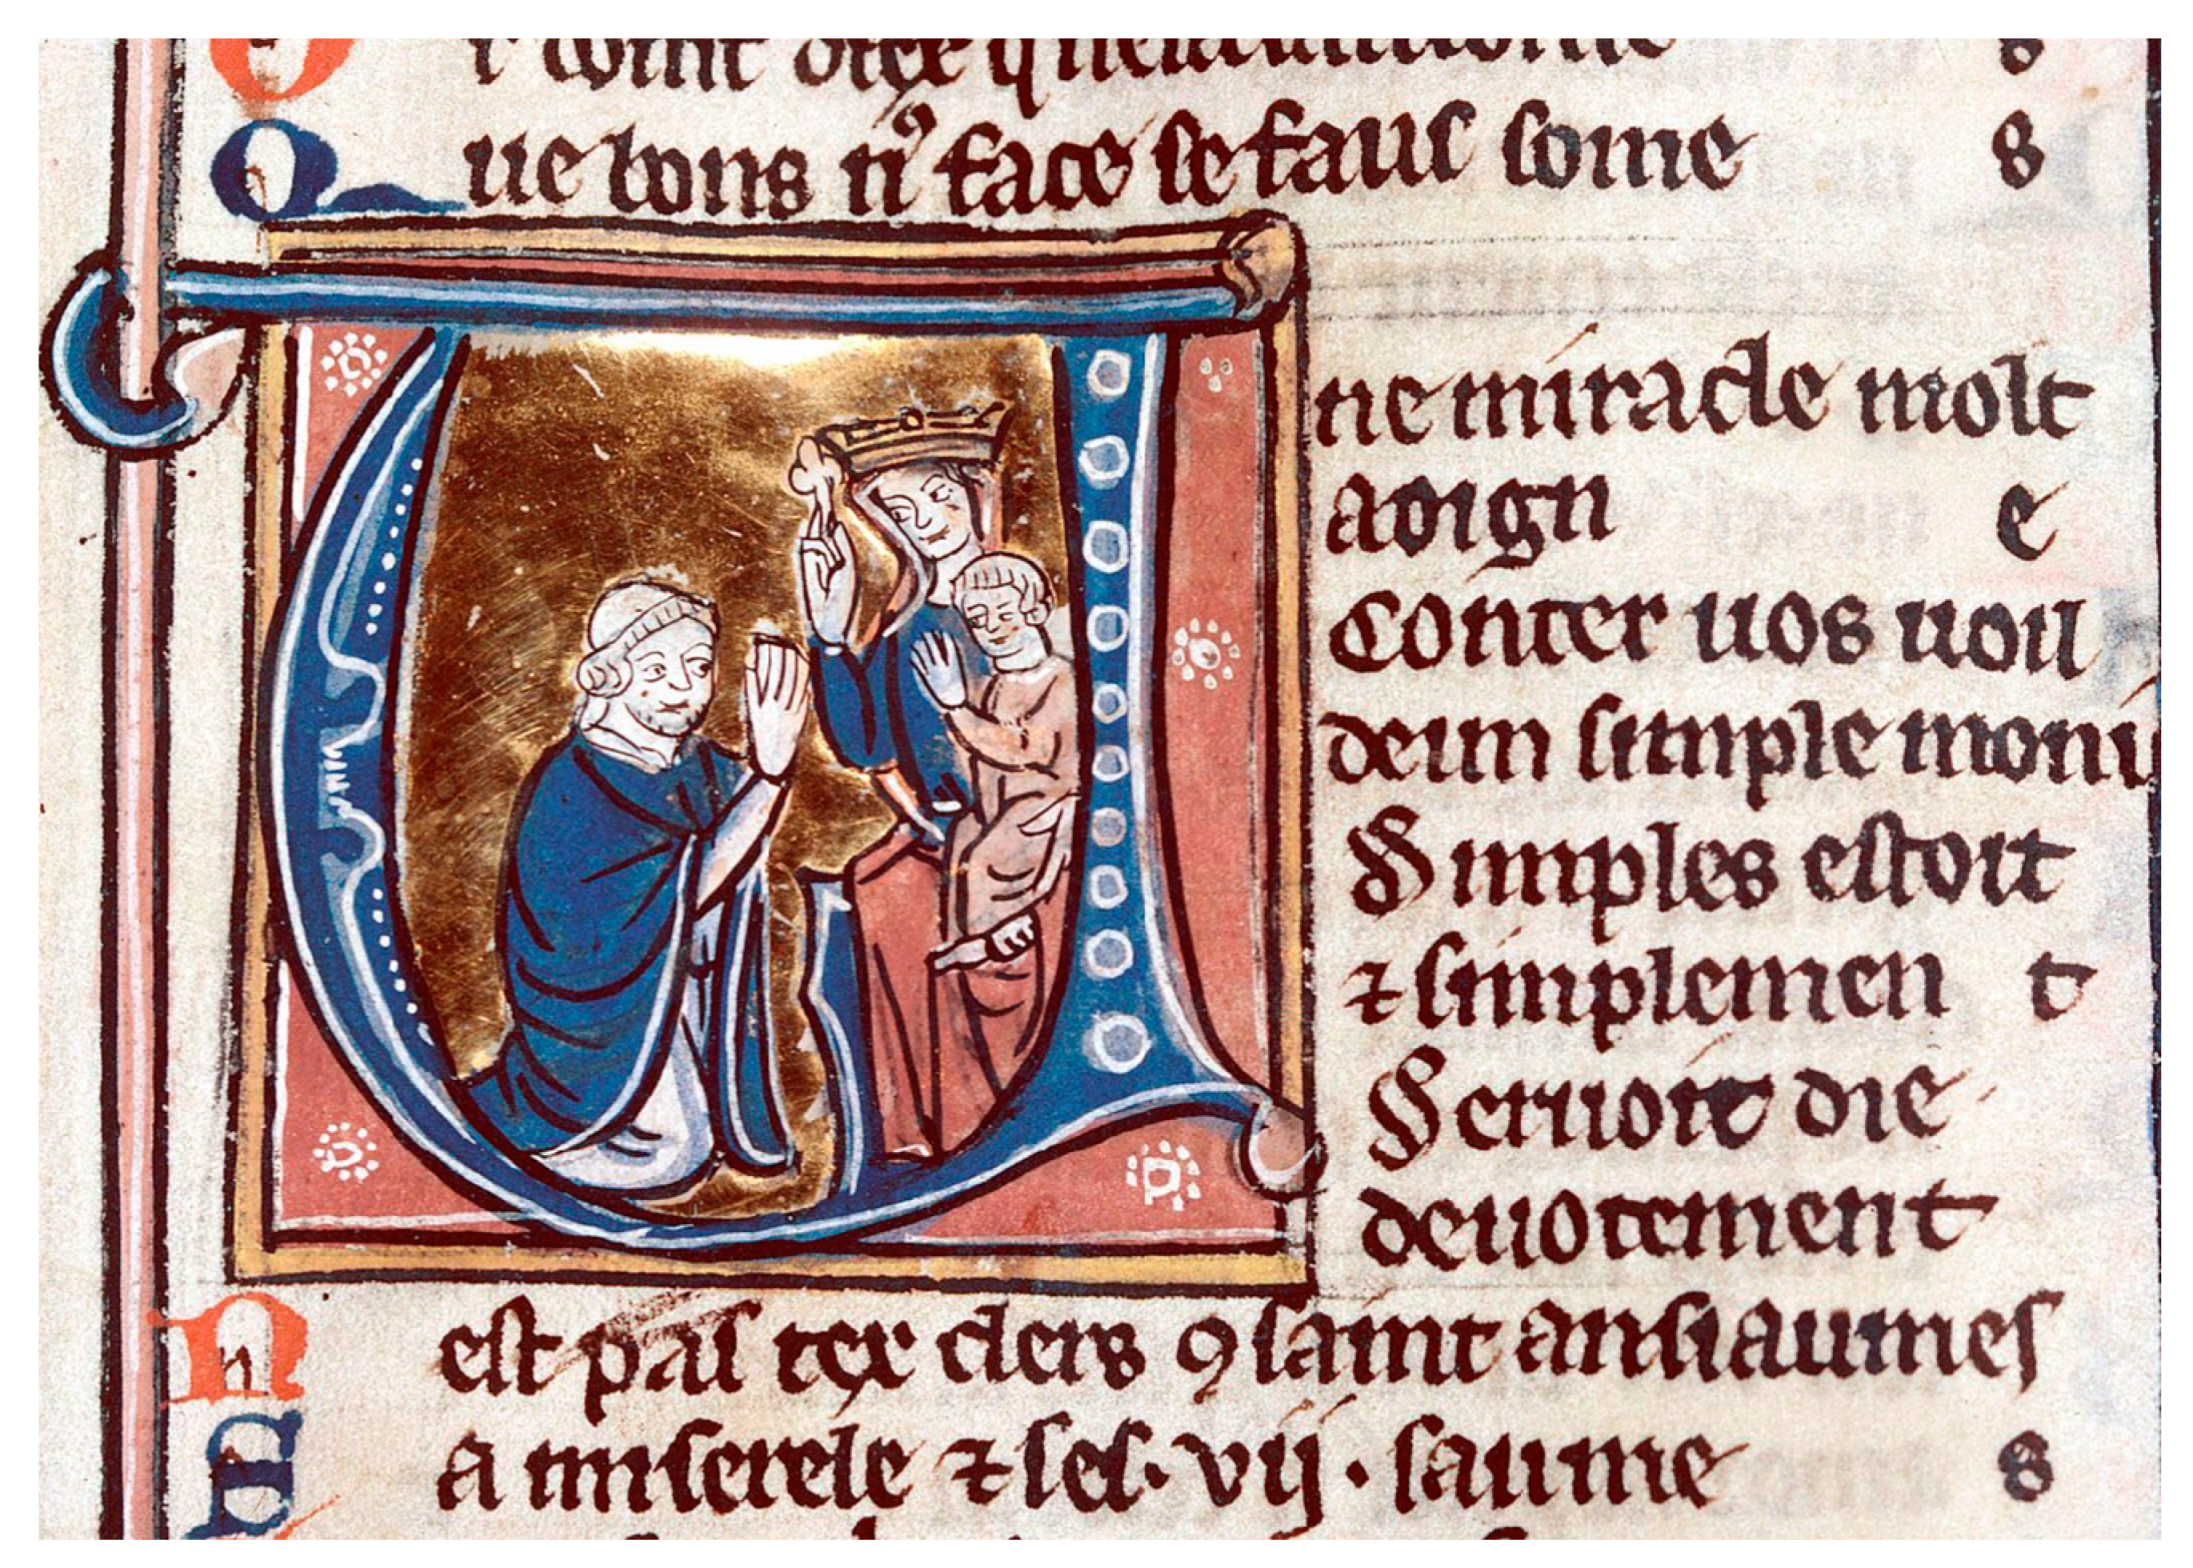 Que bons n' face se faus some s
Une miracle molt
avign e
Conter uos uoil
deun simple moni
Simples estoit
⁊ simplemen t
Seruoit die
deuotement
Nest pas tex clers ꝯ saint ansiaumes
Sa miserele ⁊ ses .vij. saume s